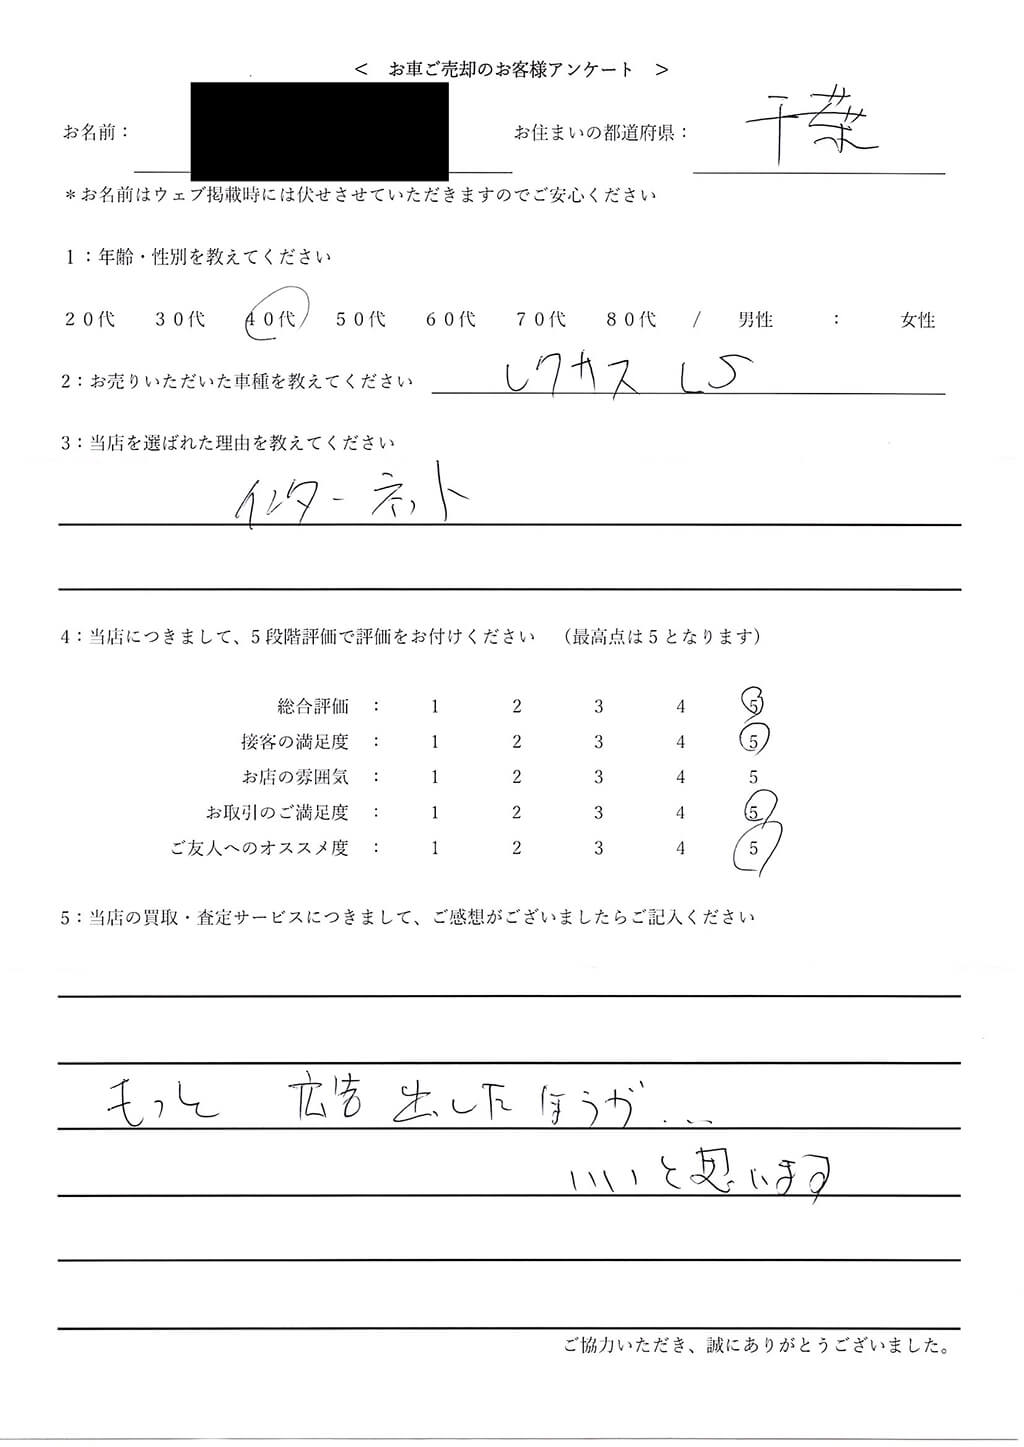 ＜　お車ご売却のお客様アンケート　＞
お名前：　お住まいの都道府県：　千葉
＊お名前はウェブ掲載時には伏せさせていただきますのでご安心ください
１：年齢・性別を教えてください
２０代　３０代　４０代　５０代　６０代　７０代　８０代　/　男性　：　女性
2：お売りいただいた車種を教えてください　レクサス LS
3：当店を選ばれた理由を教えてください
インターネット
4：当店につきまして、５段階評価で評価をお付けください　（最高点は５となります）
総合評価　：　1　2　3　4　5
接客の満足度　：　1　2　3　4　5
お店の雰囲気　：　1　2　3　4　5
お取引のご満足度　：　1　2　3　4　5
ご友人へのオススメ度　：　1　2　3　4　5
5：当店の買取・査定サービスにつきまして、ご感想がございましたらご記入ください
もっと　広告　出したほうが...
いいと思います
ご協力いただき、誠にありがとうございました。